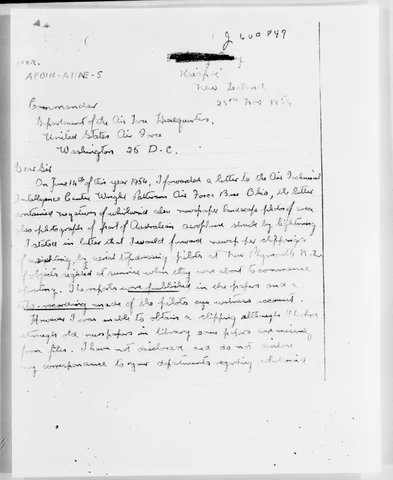 J 600747
AFOIN-ATIAE-5
Kaiapoi
New Zealand
23rd Nov 1954
Commander
Department of the Air Force Headquarters.
United States Air Force
Washington 25 D.C.
Dear Sir
On June 14th of this year 1954, I forwarded a letter to the Air Technical
Intelligence Center Wright Patterson Air Force Base Ohio, the letter
contained negatives of whirlwind also newspaper landscape photos of area
also photographs of front of Australian aeroplane struck by lightning
I stated in letter that I would forward newspaper clippings
of sighting by aerial topdressing pilots at New Plymouth N.Z.
of objects sighted at sunrise when they were about to commence
operating. The reports were published in the papers and a
recording made of the pilots eye witness account.
However I was unable to obtain a clipping although I looked
through old newspapers in library some papers are missing
from files. I have not disclosed and do not disclose
my correspondence to your departments regarding whirlwind